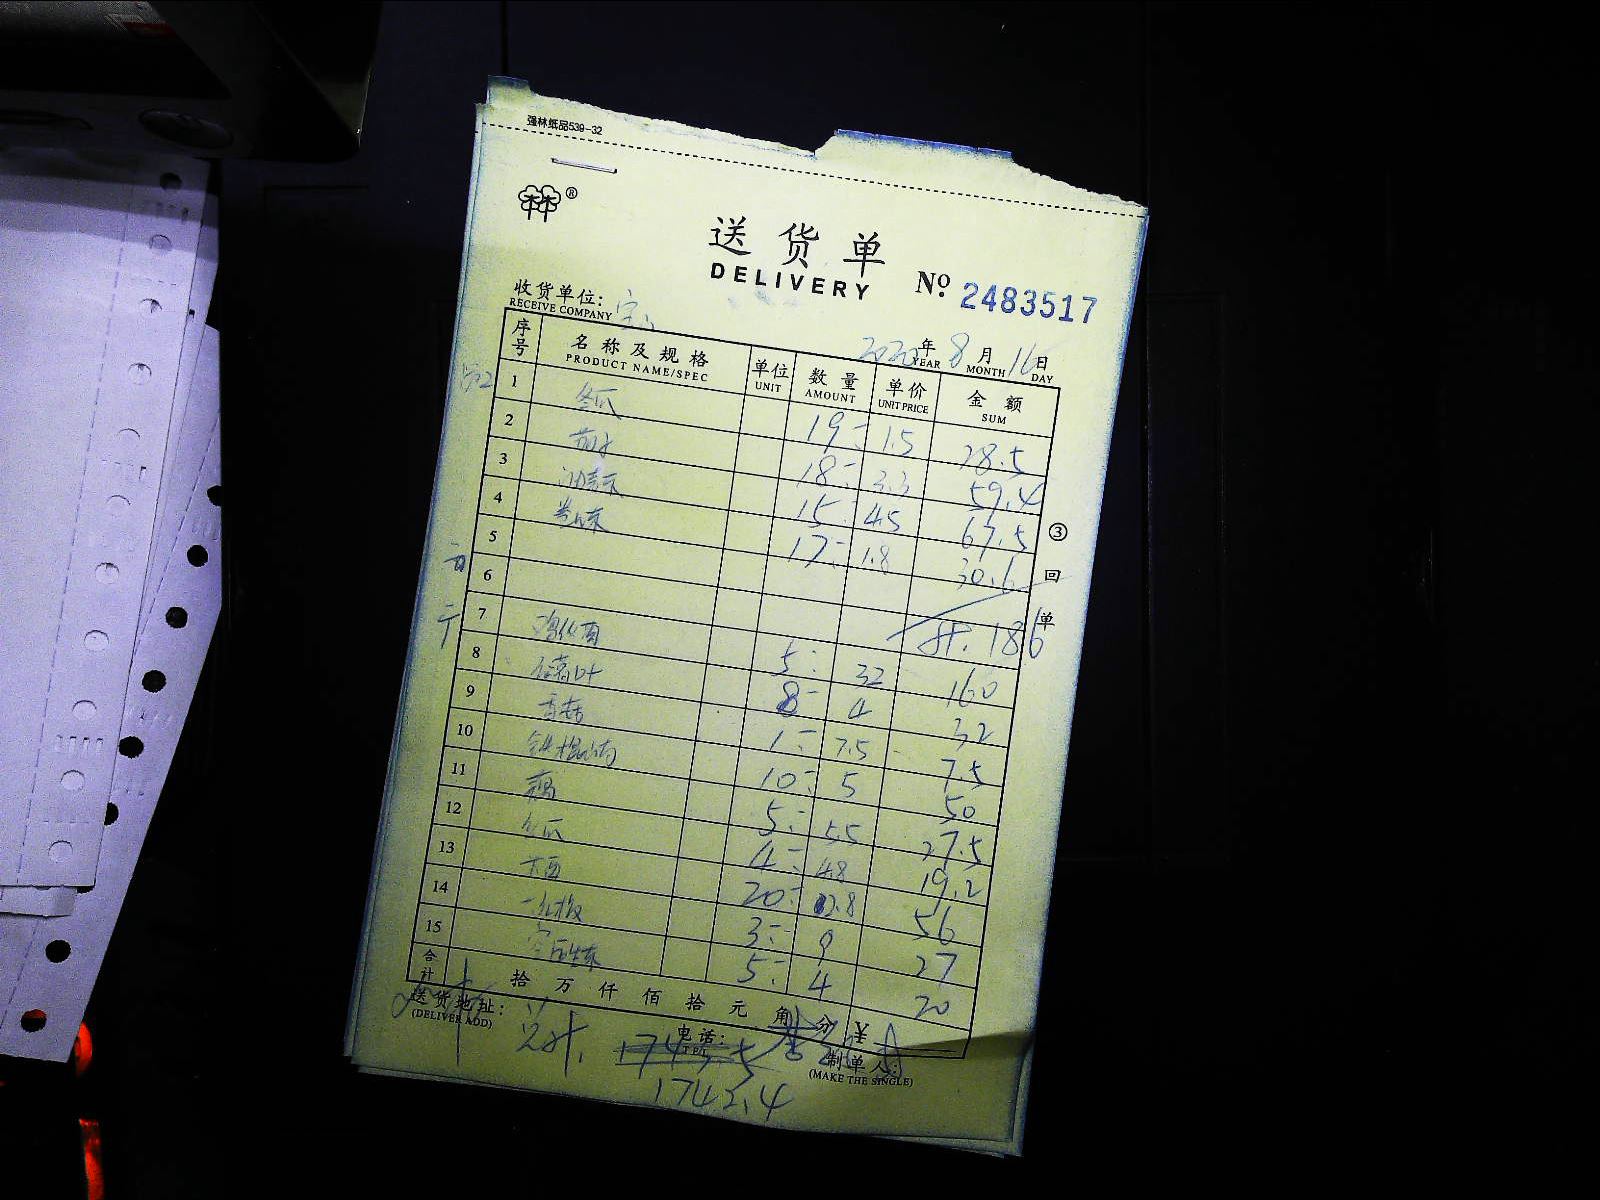 强林纸品539-32
送货单
DELIVERY
No. 2483517
收货单位:
RECEIVE COMPANY
2020年8月16日
YEAR MONTH DAY
序号 名称及规格 单位 数量 单价 金额
PRODUCT NAME/SPEC UNIT AMOUNT UNIT PRICE SUM
1 冬瓜 19 1.5 28.5
2 茄子 18 3.3 59.4
3 油麦菜 15 4.5 67.5
4 17 1.8 30.6
5
6 计. 186
7 5 32 160
8 8 4 32
9 香菇 1 7.5 7.5
10 铁棍山药 10 5 50
11 5 5.5 27.5
12 4 4.8 19.2
13 20 2.8 56
14 3 9 27
15 5 4 20
合计 拾 万 仟 佰 拾 元 角 分 ¥
送货地址:
(DELIVER ADD)
电话:
TEL
制单人:
(MAKE THE SINGLE)
总计.
1743.4
③回单